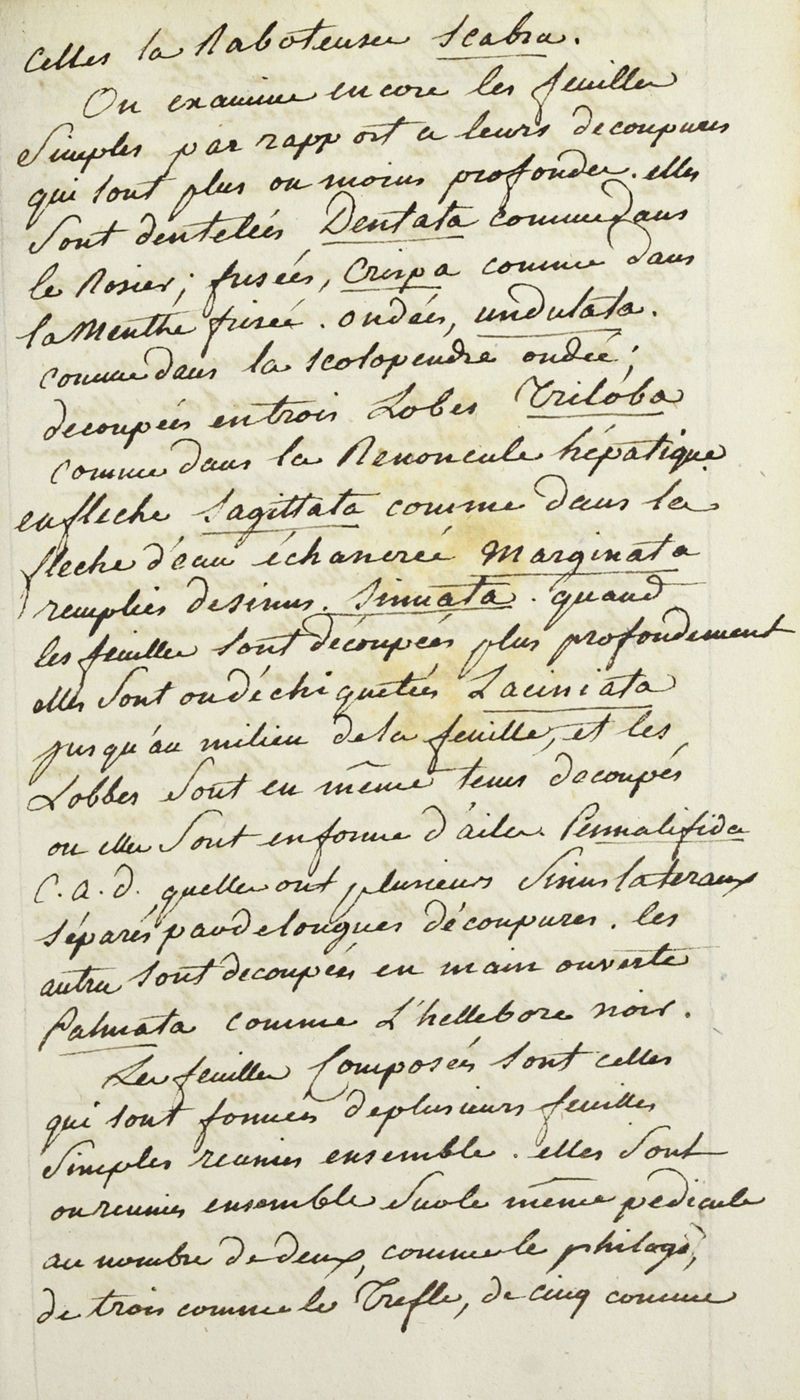 celles la Raboteuse Scabra.
On examine encore les feuilles
Simples par rapport a leurs decoupures
qui sont plus ou moins profondes. elles
Sont dentelées Dentata comme dans
le Rosier; frisées, Crispa comme dans
la Menthe frisée. ondées, undulata.
comme dans la scolopendre ondée;
decoupées en trois Lobes Triloba
comme dans la Renoncule hépatique
en fleche Sagittata comme dans la
fleche d'eau échancrée Marginata
remplies de sinus. Sinuata. quand
les feuilles sont découpées plus profondement
elles Sont ou déchiquetées Laciniata
jusqu'au milieu de la feuille, et les
Lobbes Sont en même tems decoupés
ou elles Sont en forme d'ailes Pennatifida
C. a. d. quelles ont plusieurs Sinus lateraux
séparés par de longues découpures. les
autres sont decoupées en main ouverte
Palmata comme L'hellebore noir.
Les feuilles Composées sont celles
qui sont formées de plusieurs feuilles
Simples reunies ensemble. elles Sont
ou reunies ensemble Sur le même pedicule
au nombre de deux, comme le
de trois comme le Trefle, de cinq comme